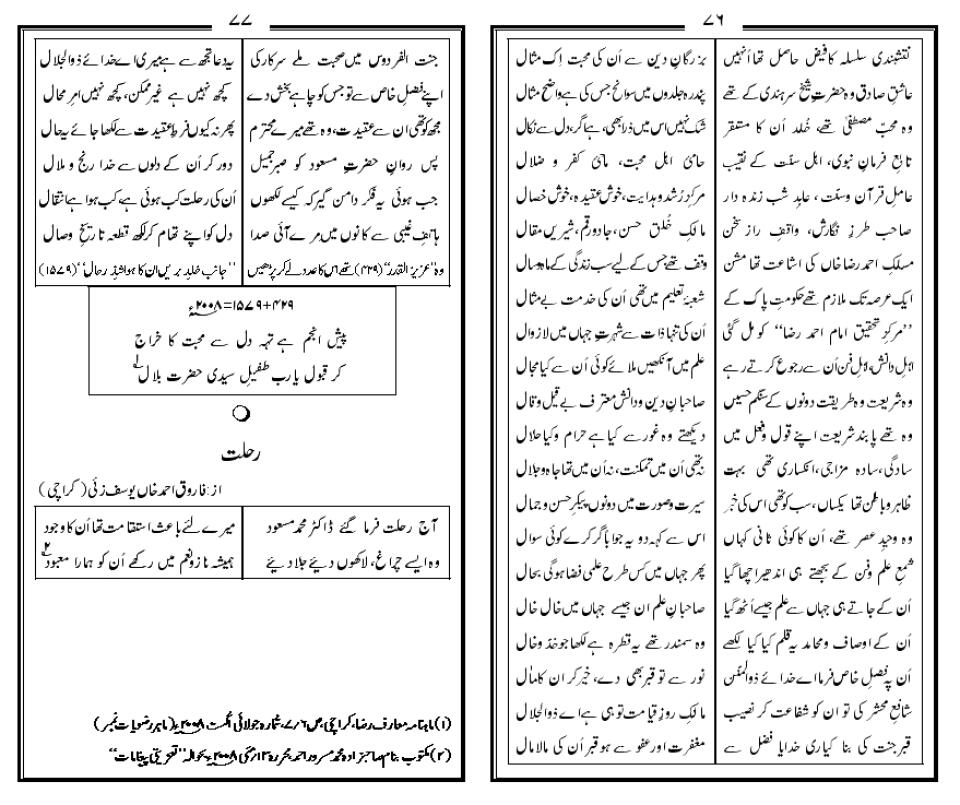 ۷۶
نقشبندی سلسلہ کا فیض حاصل تھا اُنہیں بزرگانِ دین سے اُن کی محبت اِک مثال
عاشقِ صادق وہ حضرتِ شیخ سرہندی کے تھے پندرہ جلدوں میں سوانح جس کی ہے واضح مثال
وہ محبّ مصطفیٰ تھے، خُلد اُن کا مستقر شک نہیں اس میں ذرا بھی، ہے اگر، دل سے نکال
تابع فرمانِ نبوی، اہل سنّت کے نقیب حامیٔ اہل محبت، ماحیٔ کفر و ضلال
عاملِ قرآن وسنّت، عابدِ شب زندہ دار مرکزِ رُشد و ہدایت، خوش عقیدہ، خوش خصال
صاحب طرزِ نگارش، واقفِ رازِ سخن مالکِ خُلق حسن، جادو رقم، شیریں مقال
مسلکِ احمد رضا خاں کی اشاعت تھا مشن وقف تھے جس کے لیے سب زندگی کے ماہ وسال
ایک عرصہ تک ملازم تھے حکومتِ پاک کے شعبۂ تعلیم میں تھی اُن کی خدمت بے مثال
’’مرکزِ تحقیق امام احمد رضا‘‘ کو مل گئی اُن کی تنہا ذات سے شہرت جہاں میں لازوال
اہلِ دانش، اہلِ فن اُن سے رجوع کرتے رہے علم میں آنکھیں ملائے کوئی اُن سے کیا مجال
وہ شریعت وہ طریقت دونوں کے سنگم حسیں صاحبانِ دین ودانش معترف بے قیل وقال
وہ تھے پابندِ شریعت اپنے قول وفعل میں دیکھتے وہ غور سے کیا ہے حرام وکیا حلال
سادگی، سادہ مزاجی، انکساری تھی بہت نہ تھی اُن میں تمکنت، نہ اُن میں تھا جاہ وجلال
ظاہر وباطن تھا یکساں، سب کو تھی اس کی خبر سیرت وصورت میں دونوں پیکرِ حسن و جمال
وہ وحیدِ عصر تھے، اُن کا کوئی ثانی کہاں اس سے کہہ دو یہ جواباً گر کرے کوئی سوال
شمعِ علم وفن کے بجھتے ہی اندھیرا چھا گیا پھر جہاں میں کس طرح علمی فضا ہوگی بحال
اُن کے جاتے ہی جہاں سے علم جیسے اُٹھ گیا صاحبانِ علم ان جیسے جہاں میں خال خال
اُن کے اوصاف ومحامد یہ قلم کیا کیا لکھے وہ سمندر تھے یہ قطرہ ہے لکھا جو خدّ وخال
اُن پہ فضلِ خاص فرما اے خدائے ذوالمنن نور سے تو قبر بھی دے، خیر کر ان کا مآل
شافعِ محشر کی تو ان کو شفاعت کر نصیب مالکِ روزِ قیامت تو ہی ہے اے ذوالجلال
قبر جنت کی بنا کیاری خدایا فضل سے مغفرت اور عفو سے ہو قبر اُن کی مالا مال
۷۷
جنت الفردوس میں صحبت ملے سرکار کی یہ دعا تجھ سے ہے میری اے خدائے ذوالجلال
اپنے فضلِ خاص سے تو جس کو چاہے بخش دے کچھ نہیں ہے غیر ممکن، کچھ نہیں امرِ محال
مجھ کو تھی ان سے عقیدت، وہ تھے میرے محترم پھر نہ کیوں فرطِ عقیدت سے لکھا جائے یہ حال
پس روانِ حضرتِ مسعود کو صبرِ جمیل دور کر اُن کے دلوں سے خدا رنج و ملال
جب ہوئی یہ فکر دامن گیر کہ کیسے لکھوں اُن کی رحلت کب ہوئی ہے کب ہوا ہے انتقال
ہاتفِ غیبی سے کانوں میں مرے آئی صدا دل کو اپنے تھام کر لکھ قطعہ تاریخِ وصال
وہ ’’عزیز القدر‘‘ (۴۲۹) تھے اس کا عدد لے کر پڑھیں ’’جانبِ خلدِ بریں ان کا ہوا شدِّ رحال‘‘ (۱۵۷۹)
۴۲۹+۱۵۷۹=۲۰۰۸ء
پیشِ انجم ہے تہہ دل سے محبت کا خراج
کر قبول یارب طفیلِ سیدی حضرت بلال۱
رحلت
از: فاروق احمد خاں یوسف زئی (کراچی)
آج رحلت فرما گئے ڈاکٹر محمد مسعود میرے لئے باعث استقامت تھا اُن کا وجود
وہ ایسے چراغ، لاکھوں دیئے جلا دیئے ہمیشہ ناز ونعم میں رکھے اُن کو ہمارا معبود۲
(۱) ماہنامہ معارف رضا، کراچی، ص ۷/۶، شمارہ جولائی اگست ۲۰۰۸ء (ماہر رضویات نمبر)
(۲) مکتوب بنام صاحبزادہ محمد مسرور احمد، محررہ ۱۳/مئی ۲۰۰۸ء بحوالہ ’’تعزیتی پیغامات‘‘